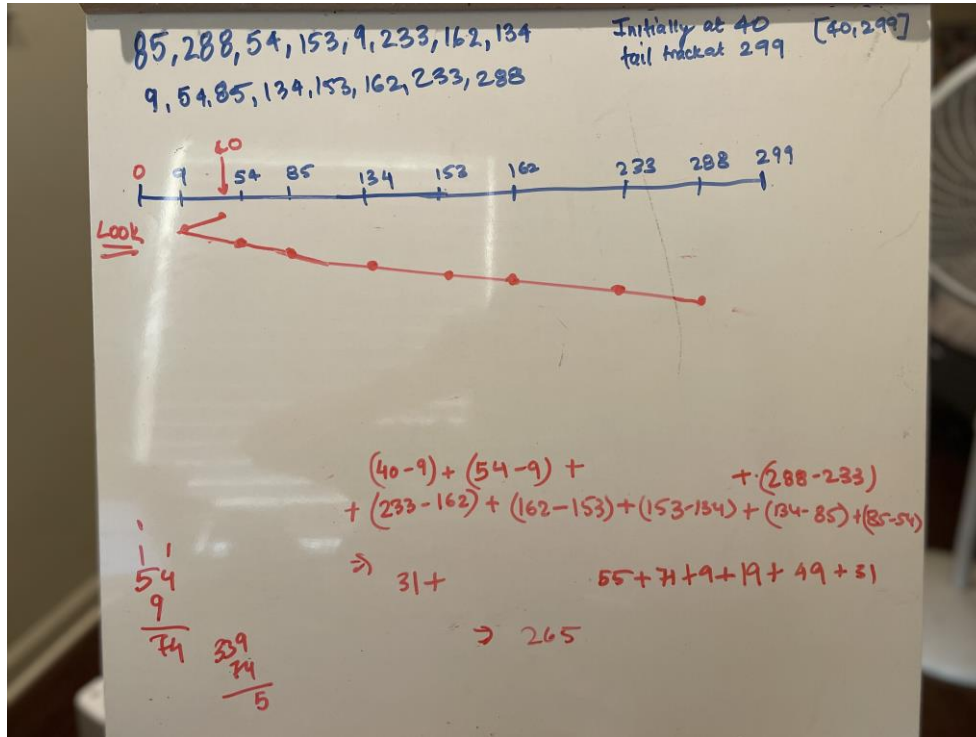 85,288,54,153,9,233,162,134
Initially at 40 [40,299]
tail track at 299
9,54,85,134,153,162,233,288
40
0 9 54 85 134 153 162 233 288 299
Look
(40-9)+(54-9)+ +(288-233)
+(233-162)+(162-153)+(153-134)+(134-85)+(85-54)
⇒ 31+ 55+71+9+19+49+31
⇒ 265
1
1 1
54
9
74
339
74
5